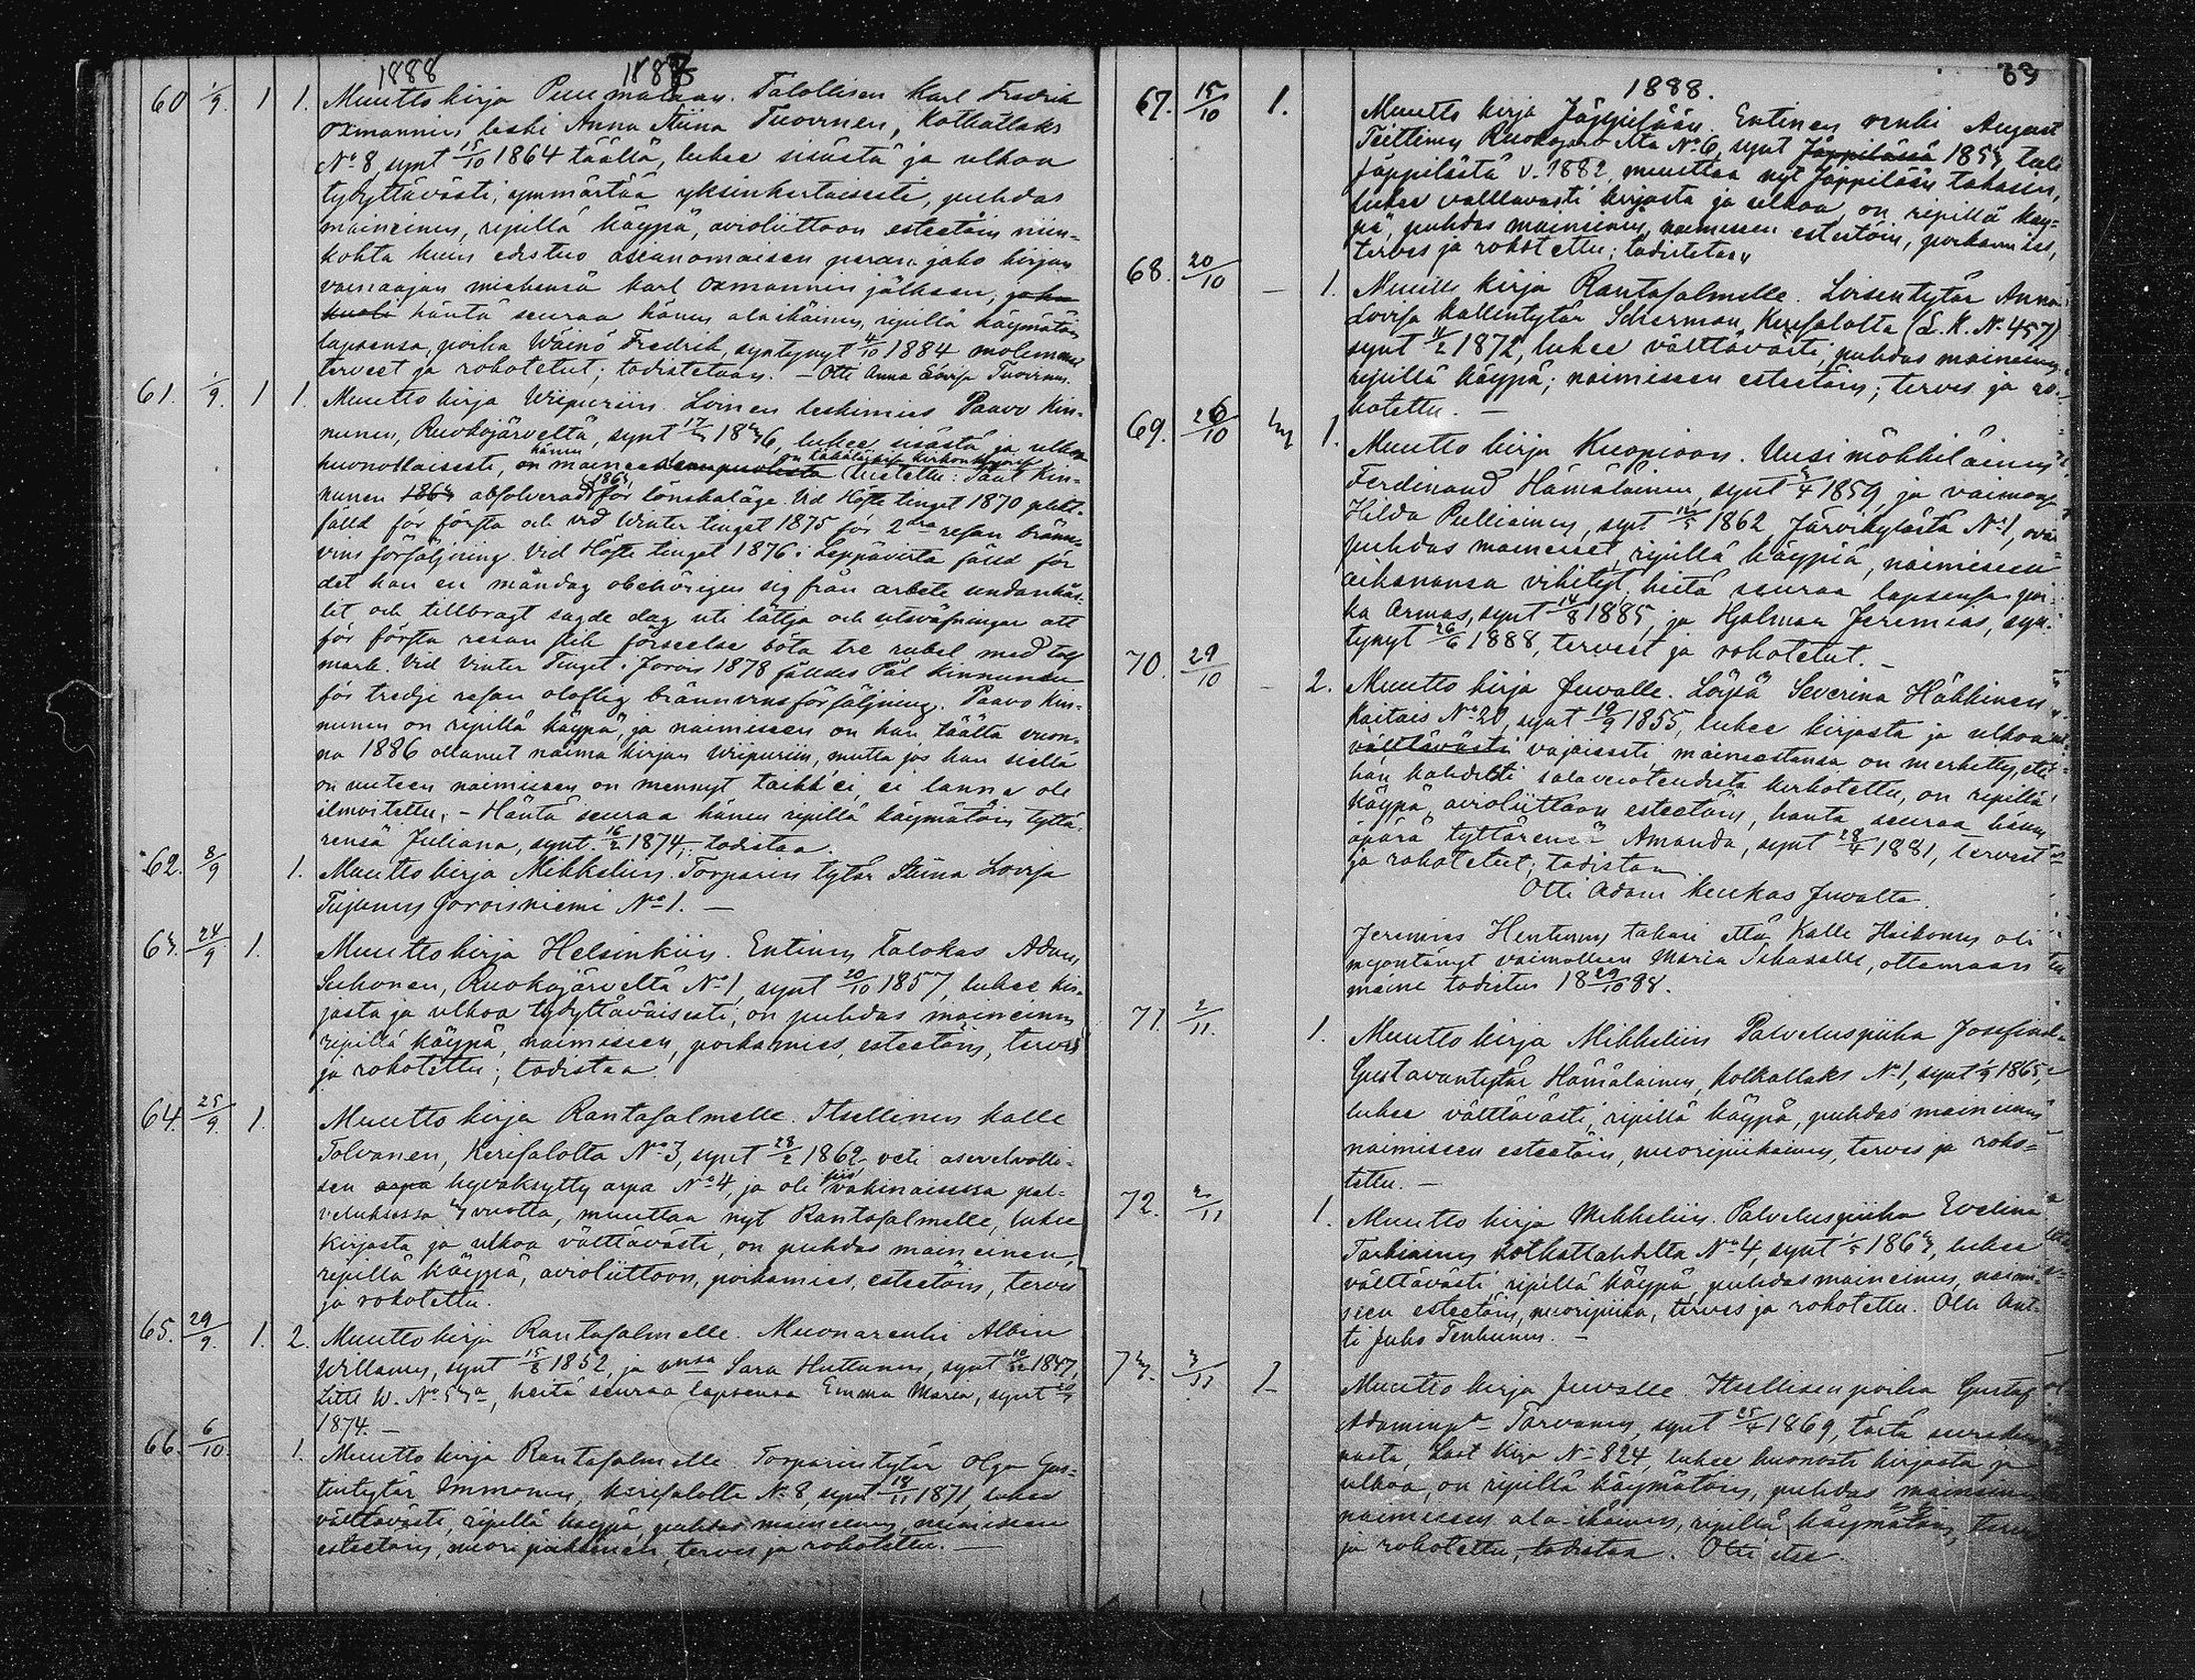 1888 1888
60 1/9. 1 1. Muuttokirja Puumalaan. Talollisen Karl Fredrik
Oxmannin leski Anna Stiina Tuovinen, Kotkatlaks
No 8, synt 15/10 1864 täällä, lukee sisästä ja ulkoa
tydyttävästi, ymmärtää yksinkertaisesti, puhdas
maineinen, ripillä käypä, avioliittoon esteetöin niin-
kohta kuin edistuo asianomaisen perunjako kirjan
varsaajan miehensä Karl Oxmannin jälkeen, joka
kuoli häntä seuraa hänen alaikäinen, ripillä käymätöin
lapsensa, poika Wäinö Fredrik, syntynyt 4/10 1884 molemmat
terveet ja rokotetut; todistetaan. — Otti Anna Lovisa Tuovinen.
61. 1/9. 1 1. Muuttokirja Wiipuriin. Loinen leskimies Paavo Kin-
nunen, Ruokojärveltä, synt 17/3 1836, lukee sisästä ja ulkoa
huonollaisesti, on hänen maineesteensapuolesta on tähäläisesä kirkonkirjoissa luetettu: Paul Kin-
nunen 1863 1863 absolverad för lönskaläge. Vid Höste tinget 1870 pliktfälld för första och vid Winter tinget 1875 för 2dra resan bränn-
vins försäljning. Vid Höste tinget 1876 i Leppävirta fälld för
det han en måndag obehörigen sig från arbete undanhål-
lit och tillbragt sagde dag uti lättja och utsväfningar att
för första resan slik förseelse böta tre rubel med tolf
mark. Vid Vinter Tinget i Jorois 1878 fälldes Pål Kinnunen
för tredje resan oloflig brännvinsförsäljning. Paavo Kin-
nunen on ripillä käypä, ja naimiseen on hän täältä vuon-
na 1886 ottanut naima kirjan Wiipuriin, mutta jos hän siellä
on uuteen naimiseen on mennyt taikk'ei, ei tänne ole
ilmoitettu, — Häntä seuraa hänen ripillä käymätöin tyttä-
rensä Juliana, synt. 16/2 1874; todistaa.
62. 8/9 1. Muuttokirja Mikkeliin. Torparin tytär Stiina Lovisa
Tiijanen Joroisniemi No 1. —
63. 24/9 1. Muuttokirja Helsinkiin. Entinen Talokas Adam
Suhonen, Ruokojärveltä No 1, synt 20/10 1857, lukee kir-
jasta ja ulkoa tydyttäväisesti, on puhdas maineinen
ripillä käypä, naimiseen, poikamies, esteetöin, terves
ja rokotettu; todistaa.
64. 25/9. 1. Muuttokirja Rantasalmelle. Itsellinen Kalle
Tolvanen, Kerisalolta No 3, synt 28/2 1862 veti asevelvolli-
sen aapa hyväksytty arpa No 4, ja oli siis vakinaisessa pal-
veluksessa 3 vuotta, muuttaa nyt Rantasalmelle, lukee
kirjasta ja ulkoa välttävästi, on puhdas maineinen,
ripillä käypä, avioliittoon, poikamies, esteetöin, terves
ja rokotettu.
65. 29/9. 1. 2. Muuttokirja Rantasalmelle. Muonarenki Albin
Willanen, synt 15/8 1852, ja vmsa Sara Huttunen, synt 10/12 1847,
Litt W. No 53a, heitä seuraa lapsensa Emma Maria, synt
1874. —
66. 6/10. 1. Muuttokirja Rantasalmelle. Torparintytär Olga Gus-
tintytär Immonen, Kerisalolta No 8, synt 18/11 1871, lukee
välttävästi, ripillä käypä, puhdas maineinen, naimiseen
esteetöin, nuori piikainen, terves ja rokotettu. —
1888. 33
67. 15/10 1. Muutto kirja Jäppilään. Entinen renki August
Teittinen Ruokojärveltä No 6, synt Jäppilässä 1853, tuli
Jäppilästä v. 1882, muuttaa nyt Jäppilään takasin,
lukee välttävästi kirjasta ja ulkoa, on ripillä käy-
pä, puhdas maineinen, naimiseen esteetöin, poikamies,
terves ja rokotettu; todistetaan
68. 20/10 — 1. Muutto kirja Rantasalmelle. Loisentytär Anna
Lovisa Kallentytär Scherman, Kerisalolta (L. K. No 457)
synt 11/2 1872, lukee välttävästi, puhdas maineinen,
ripillä käypä; naimiseen esteetöin; terves ja ro-
kotettu. —
69. 26/10 3 1. Muutto kirja Kuopioon. Uusi mökkiläinen
Ferdinand Hämäläinen, synt 3/4 1859, ja vaimonsa
Hilda Pulliainen, synt 12/5 1862 Järvikylästä No 1, ovat
puhdas maineiset, ripillä käypiä, naimiseen
aikanansa vihityt, heitä seuraa lapsensa poi-
ka Armas, synt 14/8 1885, ja Hjalmar Jeremias, syn-
tynyt 26/6 1888, terveet ja rokotetut. —
70. 29/10 — 2. Muutto kirja Juvalle. Löysä Severina Häkkinen
Kaitais No 20, synt 19/9 1855, lukee kirjasta ja ulkoa
välttävästi vajaisesti, maineestansa on merkitty, että
hän kahdesti salavuoteudesta kirkotettu, on ripillä
käypä, avioliittoon esteetöin, häntä seuraa hänen
äpärä tyttärensä Amanda, synt 28/4 1881, terveet
ja rokotetut; todistaa
Otti Adam Keukas Juvalta.
Jeremias Hentunen takasi että Kalle Haikonen oli
myöntänyt vaimolleen Maria ottamaan
maine todistus 18 29/10 88.
71. 2/11. 1. Muutto kirja Mikkeliin Palveluspiika Josefina
Gustavantytär Hämäläinen, Kolkallaks No 1, synt 1/9 1865,
lukee välttävästi, ripillä käypä, puhdas maineinen
naimiseen esteetöin, nuoripiikainen, terves ja roko-
tettu. —
72. 2/11 1. Muutto kirja Mikkeliin. Palveluspiika Evelina
Tarkiainen Kotkatlahdelta No 4, synt 1/5 1863, lukee
välttävästi, ripillä käypä, puhdas maineinen, naimi-
seen esteetöin, nuoripiika, terves ja rokotettu. Otti Ant-
ti Juho Tenhunen. —
73. 3/11 1 Muutto kirja Juvalle. Itsellisen poika Gustaf
Adaminp. Tarvanen, synt 25/4 1869, tästä seurakun-
nasta, Last Kirja No 824, lukee huonosti kirjasta ja
ulkoa, on ripillä käymätöin, puhdas maineinen
naimiseen ala-ikäinen, ripillä käymätöin, terves
ja rokotettu, todistaa. Otti itse.